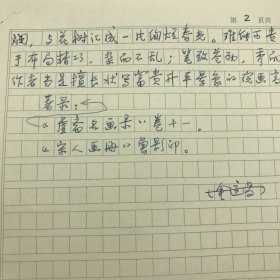 第 2 页共
斓，与花树汇成一片绚烂春光。难能可贵
于布局精巧，繁而不乱；笔致苍劲，秀而
作者当是擅长状写富贵升平景象的绘画高
著录：
《虚斋名画录》卷十一。
《宋人画册》曾影印。